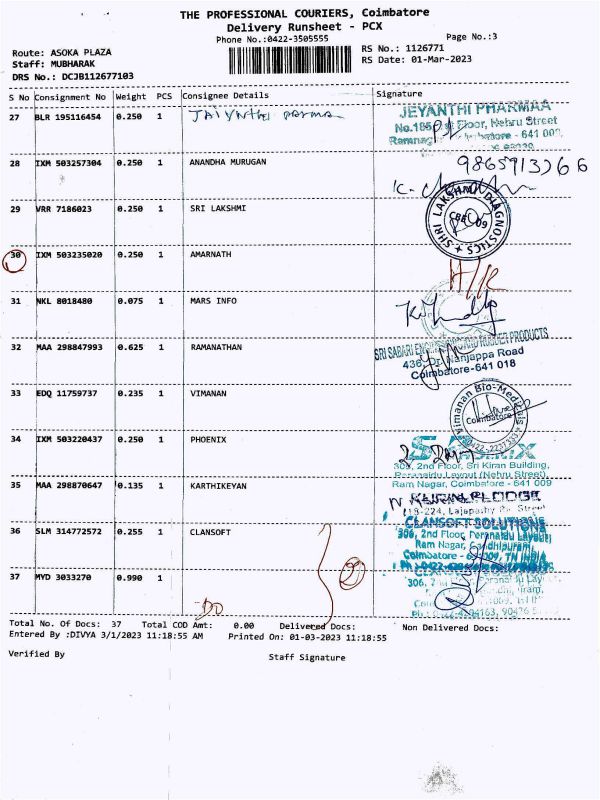 THE PROFESSIONAL COURIERS, Coimbatore
Delivery Runsheet - PCX
Phone No.:0422-3505555
Page No.:3
Route: ASOKA PLAZA
RS No.: 1126771
Staff: MUBHARAK
RS Date: 01-Mar-2023
DRS No.: DCJB112677103
S No Consignment No Weight PCS Consignee Details Signature
27 BLR 195116454 0.250 1
JEYANTHI PHARMAA
Floor, Nehru Street
28 IXM 503257304 0.250 1 ANANDHA MURUGAN
29 VRR 7186023 0.250 1 SRI LAKSHMI
SHRI LAKSHMI DIAGNOSTICS
30 IXM 503235020 0.250 1 AMARNATH
31 NKL 8018480 0.075 1 MARS INFO
32 MAA 298847993 0.625 1 RAMANATHAN
SRI SABARI RUBBER PRODUCTS
436, Dr. Nanjappa Road
Coimbatore-641 018
33 EDQ 11759737 0.235 1 VIMANAN
Vimanan Bio-Medicals
Coimbatore
34 IXM 503220437 0.250 1 PHOENIX
2nd Floor, Sri Kiran Building,
Peranaidu Layout (Nehru Street)
Ram Nagar, Coimbatore - 641 009
35 MAA 298870647 0.135 1 KARTHIKEYAN
36 SLM 314772572 0.255 1 CLANSOFT
CLANSOFT SOLUTIONS
306, 2nd Floor, Peranaidu Layout
Ram Nagar, Gandhipuram,
37 MYD 3033270 0.990 1
Total No. Of Docs: 37 Total COD Amt: 0.00 Delivered Docs: Non Delivered Docs:
Entered By :DIVYA 3/1/2023 11:18:55 AM Printed On: 01-03-2023 11:18:55
Verified By Staff Signature